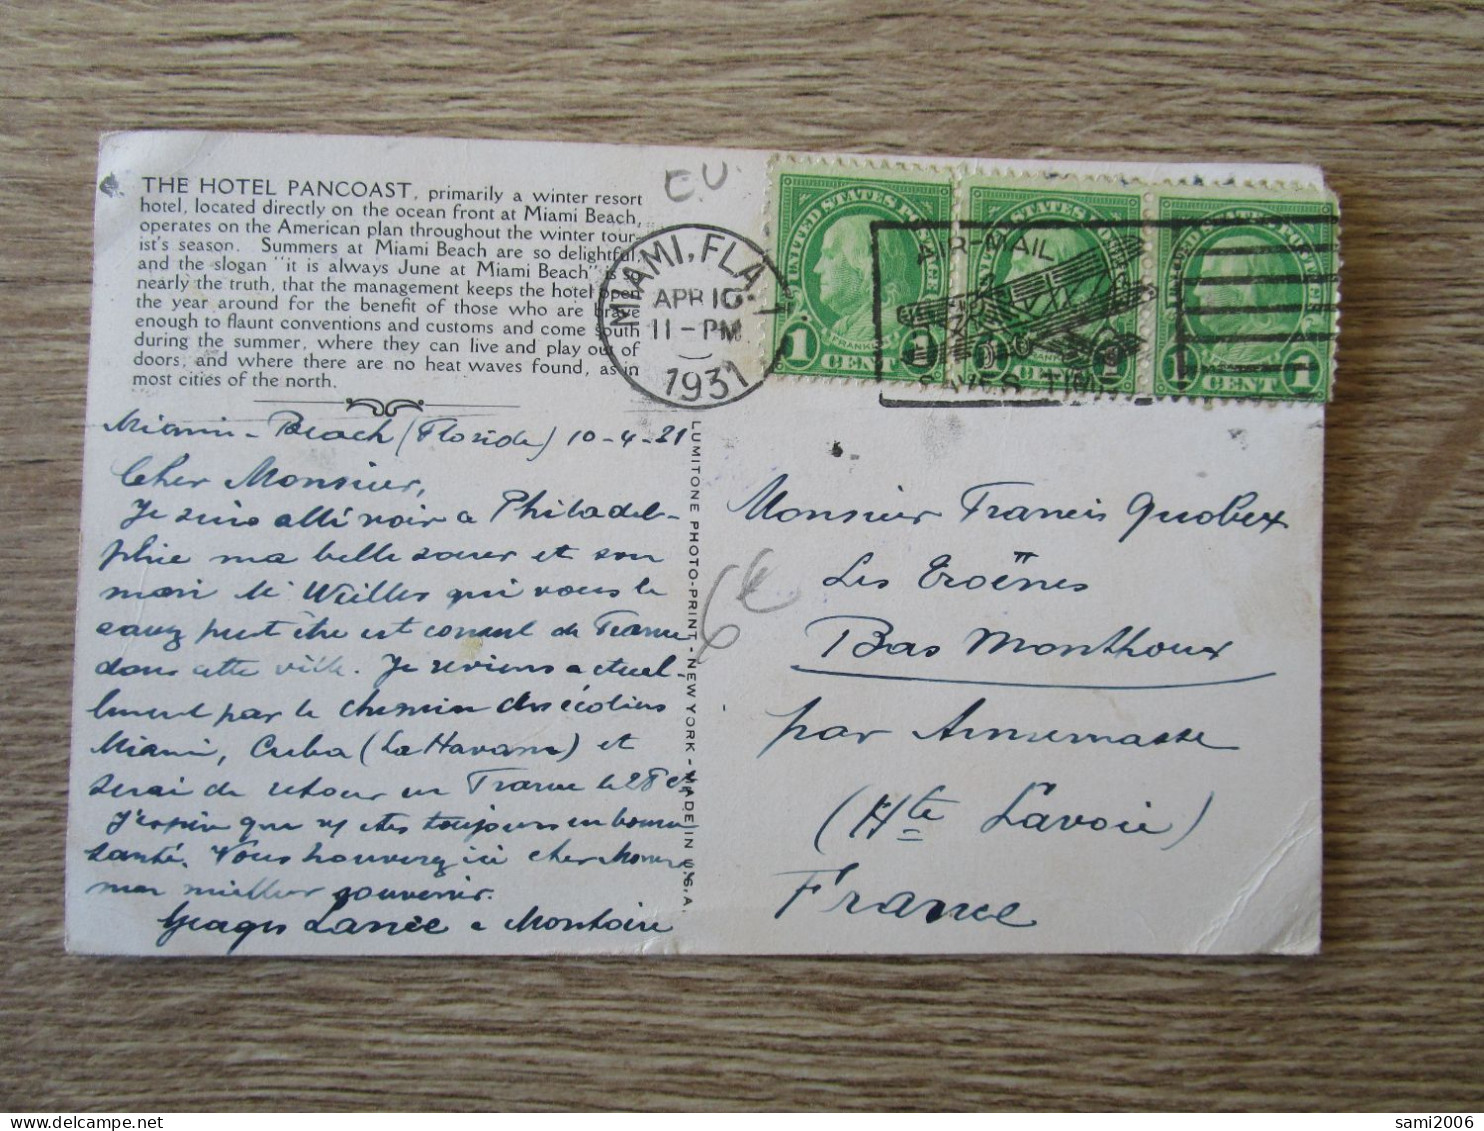 THE HOTEL PANCOAST, primarily a winter resort
hotel, located directly on the ocean front at Miami Beach,
operates on the American plan throughout the winter tour-
ist's season. Summers at Miami Beach are so delightful,
and the slogan "it is always June at Miami Beach" is so
nearly the truth, that the management keeps the hotel open
the year around for the benefit of those who are brave
enough to flaunt conventions and customs and come south
during the summer, where they can live and play out of
doors, and where there are no heat waves found, as in
most cities of the north.
EU
MIAMI, FLA. 1
APR 10
11-PM
1931
UNITED STATES POSTAGE
FRANKLIN
1 CENT 1
AIR-MAIL
SAVES TIME
Miami-Beach (Floride) 10-4-31
Cher Monsieur,
Je suis allé voir a Philadel-
phie ma belle sœur et son
mari Mr Weiller qui vous le
savez peut être est consul de France
dans cette ville. Je reviens actuel-
lement par le chemin des écoliers
Miami, Cuba (La Havane) et
serai de retour en France le 28 ct
J'espère que vs êtes toujours en bonne
santé. Vous trouverez ici cher Monsieur
mon meilleur souvenir.
Georges Lanée a Montoire
LUMITONE PHOTO-PRINT - NEW YORK - MADE IN U.S.A.
6€
Monsieur Francis Quobex
Les Troënes
Bas Monthoux
par Annemasse
(Hte Savoie)
France
sami2006